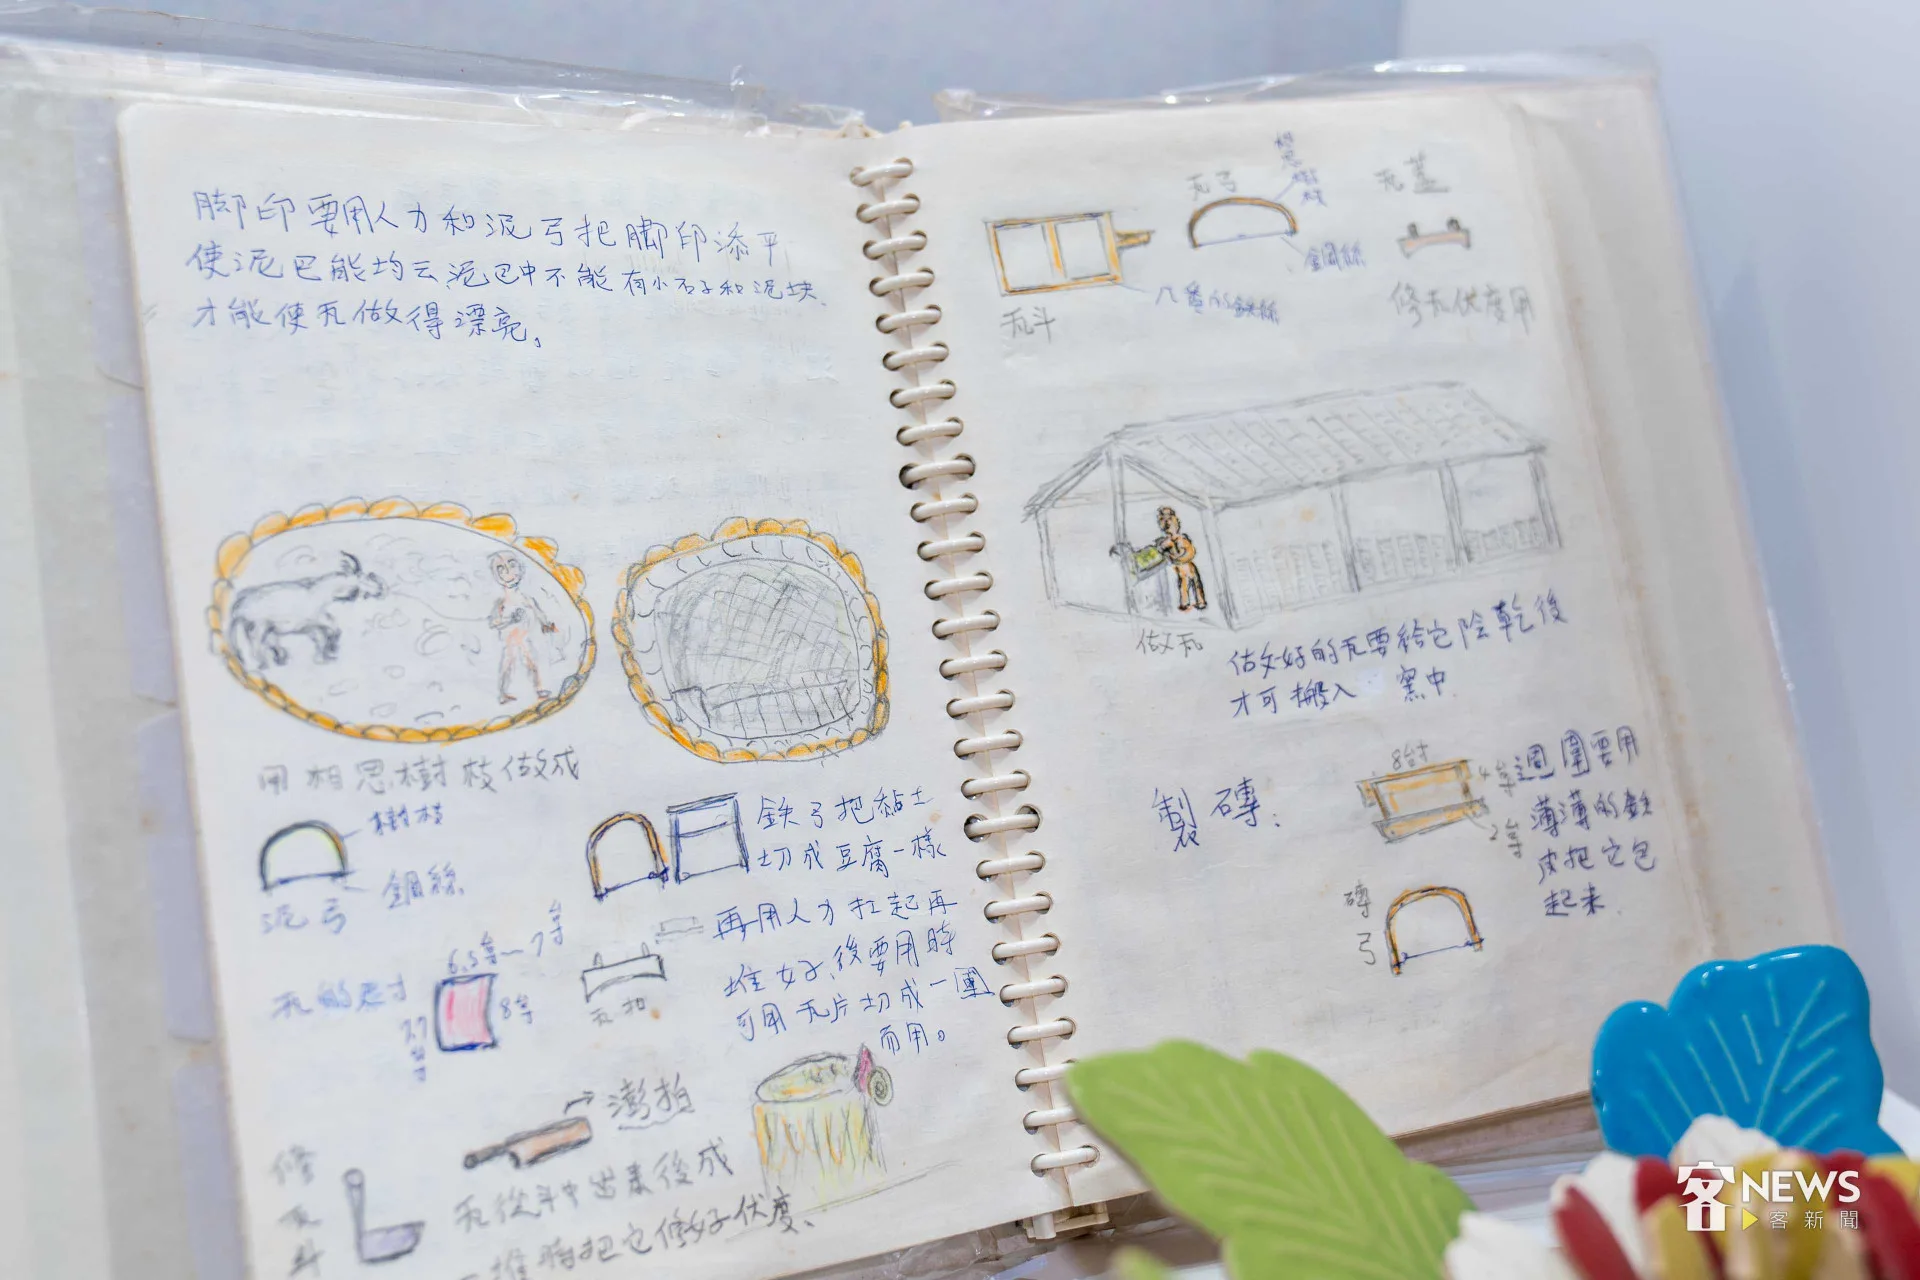 脚印要用人力和泥弓把脚印添平
使泥巴能均云泥巴中不能有小石子和泥块
才能使瓦做得漂亮。
用相思樹枝做成
樹枝
鋼絲
泥弓
鉄弓把黏土
切成豆腐一樣
再用人力扛起再
堆好,後要用時
可用瓦片切成一圍
而用。
瓦的尺寸
6.5台寸~7台寸
8台寸
瓦拍
澎拍
瓦從斗中出來後成
把它修好伏度、
瓦斗
瓦弓
相思樹枝
鋼絲
瓦蓋
修瓦伏度用
做瓦
做好的瓦要給它陰乾後
才可搬入 窯中.
製磚:
8台寸
4台寸
2台寸
週圍要用
薄薄的鉄
皮把它包
起来.
磚弓
客NEWS
客新聞